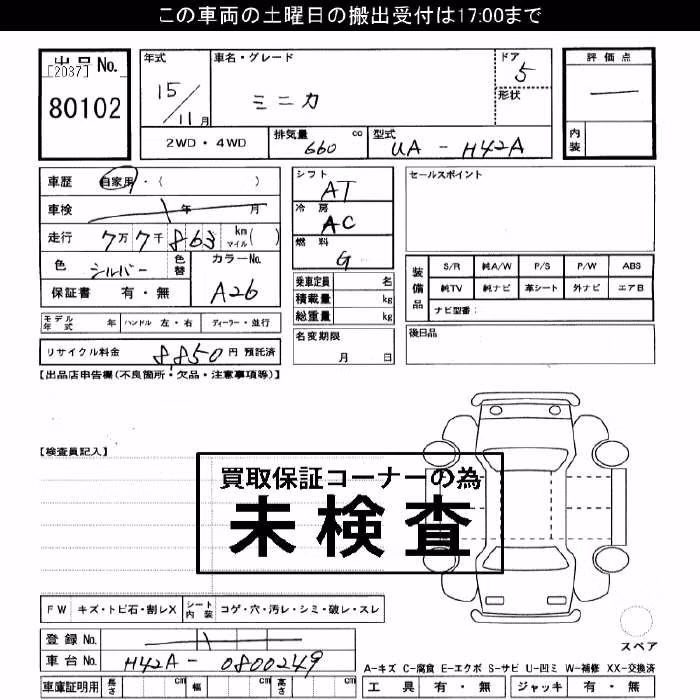 この車両の土曜日の搬出受付は17:00まで
出品 No.
[2037]
80102
年式
15/11月
車名・グレード
ミニカ
ドア
5
形状
2WD・4WD
排気量 660 cc
型式 UA - H42A
評価点
—
内装
車歴 自家用・( )
車検 年 月
走行 7万7千863 km マイル ( )
色 シルバー 色替
カラーNo. A26
保証書 有・無
シフト
AT
冷房
AC
燃料
G
乗車定員 名
積載量 kg
総重量 kg
セールスポイント
装備品
S/R 純A/W P/S P/W ABS
純TV 純ナビ 革シート 外ナビ エアB
ナビ型番:
モデル年式 年 ハンドル 左・右 ディーラー・並行
名変期限
月 日
後日品
リサイクル料金 8850 円 預託済
【出品店申告欄(不良箇所・欠品・注意事項等)】
【検査員記入】
買取保証コーナーの為
未検査
FW キズ・トビ石・割レX シート内装 コゲ・穴・汚レ・シミ・破レ・スレ
スペア
登録 No.
車台 No. H42A - 0800249
A-キズ C-腐食 E-エクボ S-サビ U-凹ミ W-補修 XX-交換済
車庫証明用 長さ cm 幅 cm 高さ cm
工具 有・無 ジャッキ 有・無